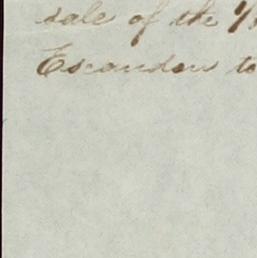 sale of the
Escandon to